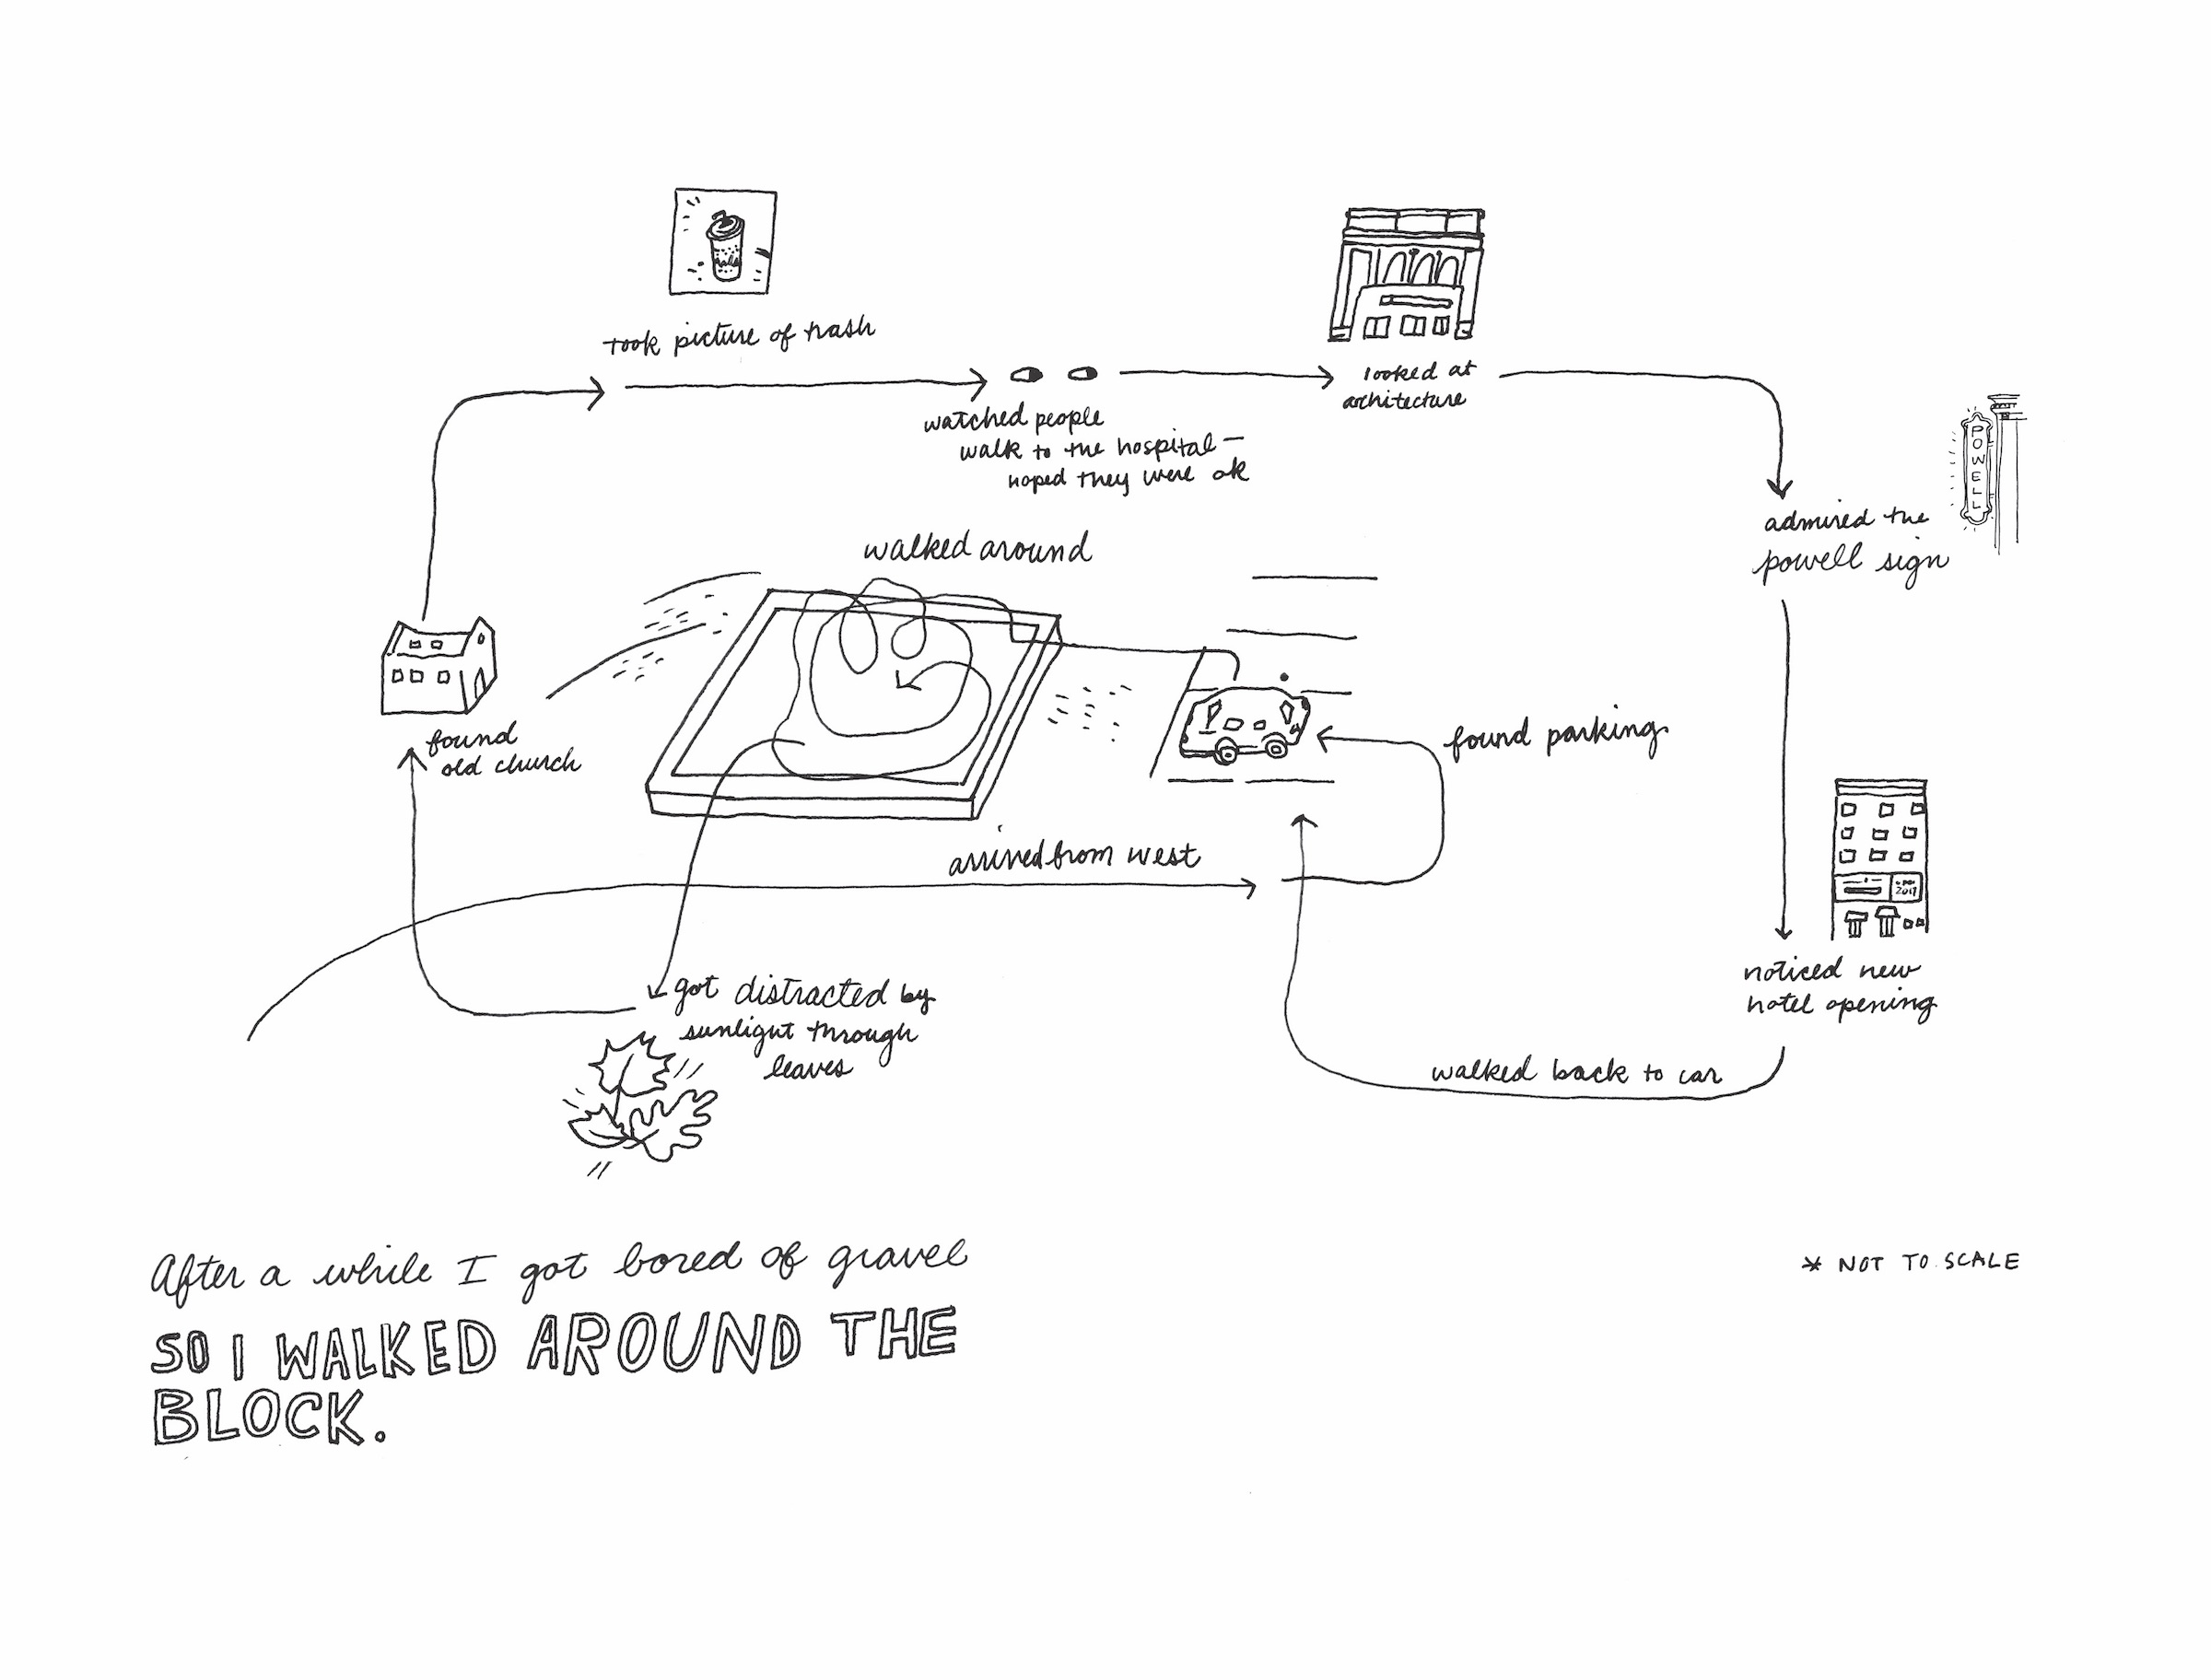 took picture of trash
watched people
walk to the hospital —
hoped they were ok
looked at
architecture
POWELL
admired the
powell sign
walked around
found
old church
found parking
arrived from west
2017
noticed new
hotel opening
got distracted by
sunlight through
leaves
walked back to car
After a while I got bored of gravel
SO I WALKED AROUND THE
BLOCK.
* NOT TO SCALE